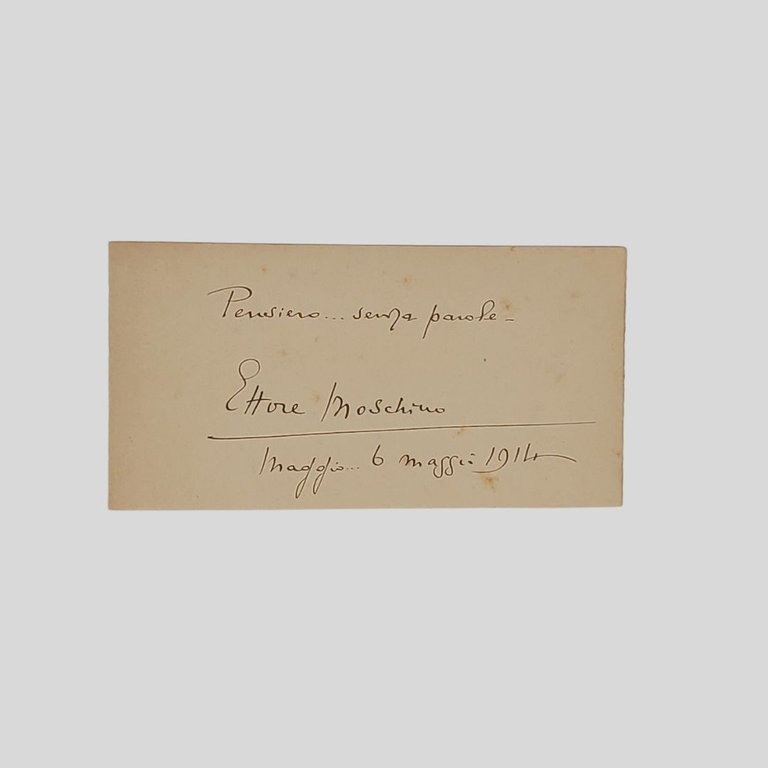 Pensiero... senza parole -
Ettore Moschino
Maggio... 6 maggio 1914